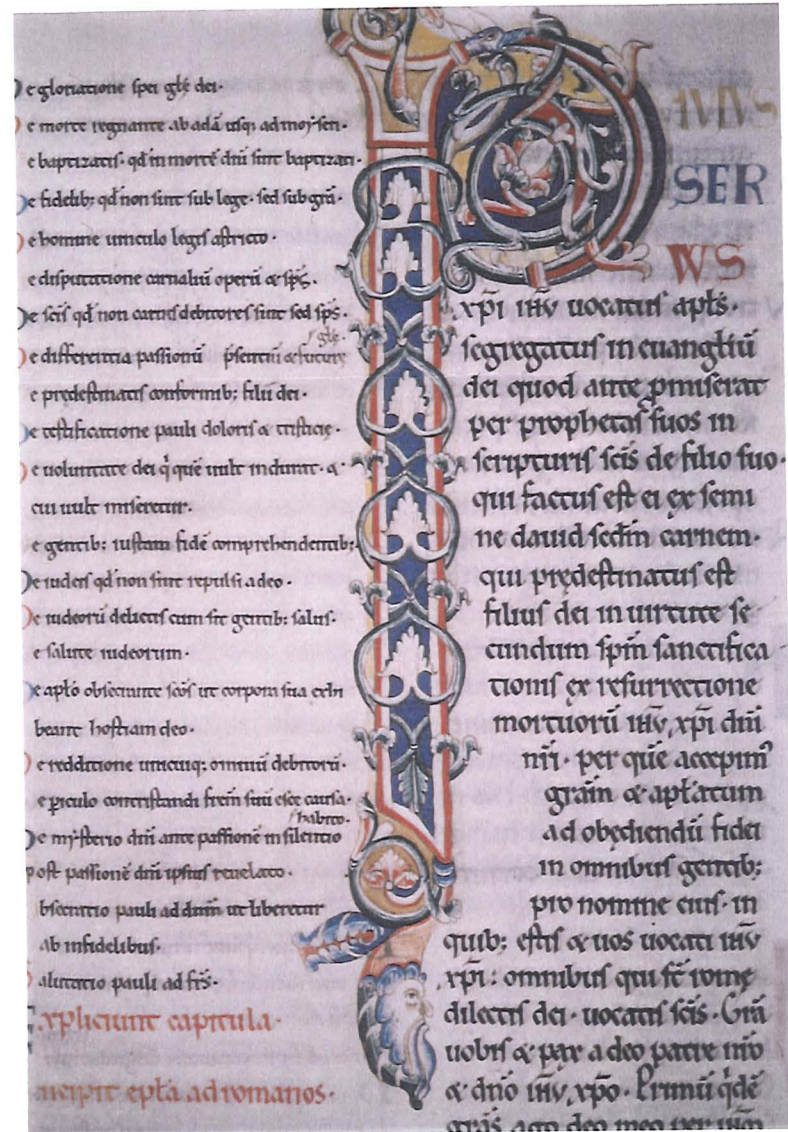 e gloriatione spei glē dei·
e morte regnante ab adā usq; ad moẏsen·
e baptizatis· qđ in mortē dn̄i sunt baptizati·
e fidelib; qđ non sint sub lege· sed sub grā·
e homine uinculo legis astricto·
e disputatione carnaliū operū & sp̄s·
e sc̄is qđ non carnis debitores sint sed sp̄s·
e differentia passionū p̄sentiū & futurę
glę·
e prędestinatis conformib; filii dei·
e testificatione pauli doloris & tristicię·
e uoluntate dei q̇ quē uult indurat· &
cui uult miseretur·
e gentib; iustam fidē comprehendentib;
e iudeis qđ non sint repulsi a deo·
e iudeorū delictis cum sit gentib; salus·
e salute iudeorum·
e apl̄o obsecrante sc̄os ut corpora sua exhi
beant hostiam deo·
e redditione unicuiq; omniū debitorū·
e ꝑiculo contristandi frēm sui esce causa·
habito·
e mẏsterio dn̄i ante passionē in silentio
post passionē dn̄i ipsius reuelato·
bsecratio pauli ad dnm̄ ut liberetur
ab infidelibus·
alutatio pauli ad fr̄s·
Expliciunt capitula·
ncipit epl̄a ad romanos·
PAULUS
SER
VUS
xp̄i ihū uocatus apl̄s·
segregatus in euangl̄iū
dei quod ante ꝓmiserat
per prophetas suos in
scripturis sc̄is de filio suo·
qui factus est ei ex semi
ne dauid sedm̄ carnem·
qui prędestinatus est
filius dei in uirtute se
cundum sp̄m sanctifica
tionis ex resurrectione
mortuorū ihū xp̄i dn̄i
nr̄i· per quē accepimꝰ
gram̄ & apl̄atum
ad obędiendū fidei
in omnibus gentib;
pro nomine eius· in
quib; estis & uos uocati ihū
xp̄i: omnibus qui st̄ romę
dilectis dei· uocatis sc̄is· Grā
uobis & pax a deo patre nr̄o
& dn̄o ihū xp̄o· Primū q̇dē
grās ago deo meo per ihm̄